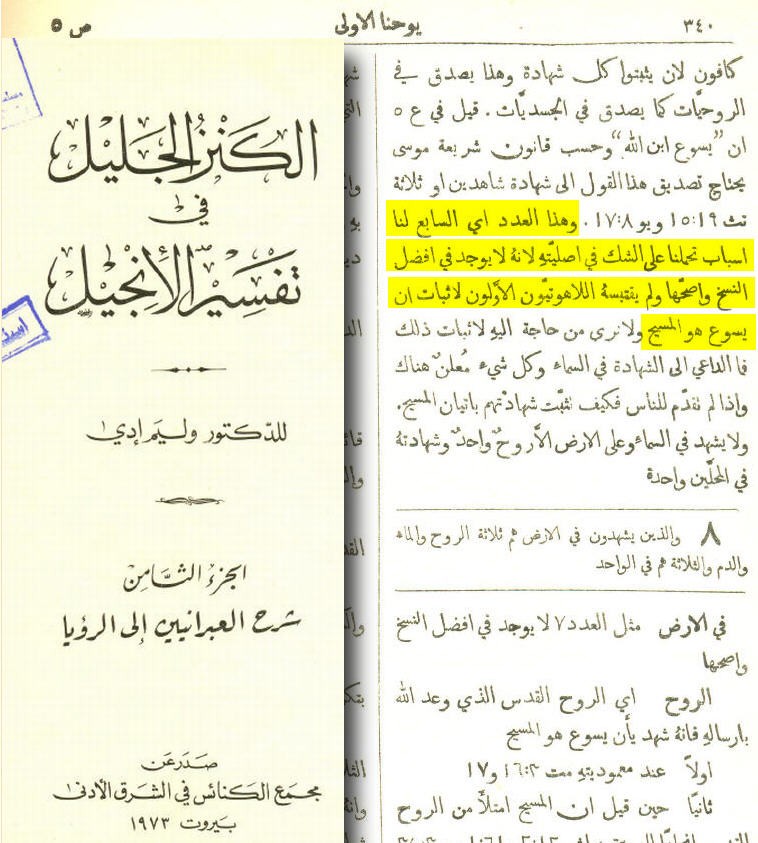 ٣٤٠
يوحنا الاولى
ص ٥
الكنز الجليل
في
تفسير الإنجيل
للدكتور وليم إدي
الجزء الثامن
شرح العبرانيين إلى الرؤيا
صدر عن
مجمع الكنائس في الشرق الأدنى
بيروت ١٩٧٣
كافون لان يثبتوا كل شهادة وهذا يصدق في
الروحيّات كما يصدق في الجسديّات. قيل في ع ٥
ان "يسوع ابن الله" وحسب قانون شريعة موسى
يحتاج تصديق هذا القول الى شهادة شاهدين او ثلاثة
تث ١٩:١٥ ويو ٨:١٧. وهذا العدد اي السابع لنا
اسباب تحملنا على الشك في اصليّتهِ لانهُ لا يوجد في افضل
النسخ واصحّها ولم يقتبسهُ اللاهوتيّون الاوّلون لاثبات ان
يسوع هو المسيح ولا نرى من حاجة اليهِ لاثبات ذلك
فما الداعي الى الشهادة في السماء وكل شيء مُعلنٌ هناك
واذا لم تقدّم للناس فكيف تثبّت شهادتهم باتيان المسيح.
ولا يشهد في السماء وعلى الارض الّا روحٌ واحدٌ وشهادتهُ
في المحلّين واحدة
٨ والذين يشهدون في الارض هم ثلاثة الروح والماء
والدم والثلاثة هم في الواحد
في الارض مثل العدد ٧ لا يوجد في افضل النسخ
واصحها
الروح اي الروح القدس الذي وعد الله
بارسالهِ فانهُ شهد بأن يسوع هو المسيح
اولاً عند معموديتهِ مت ٣:١٦ و١٧
ثانيًا حين قيل ان المسيح امتلأ من الروح